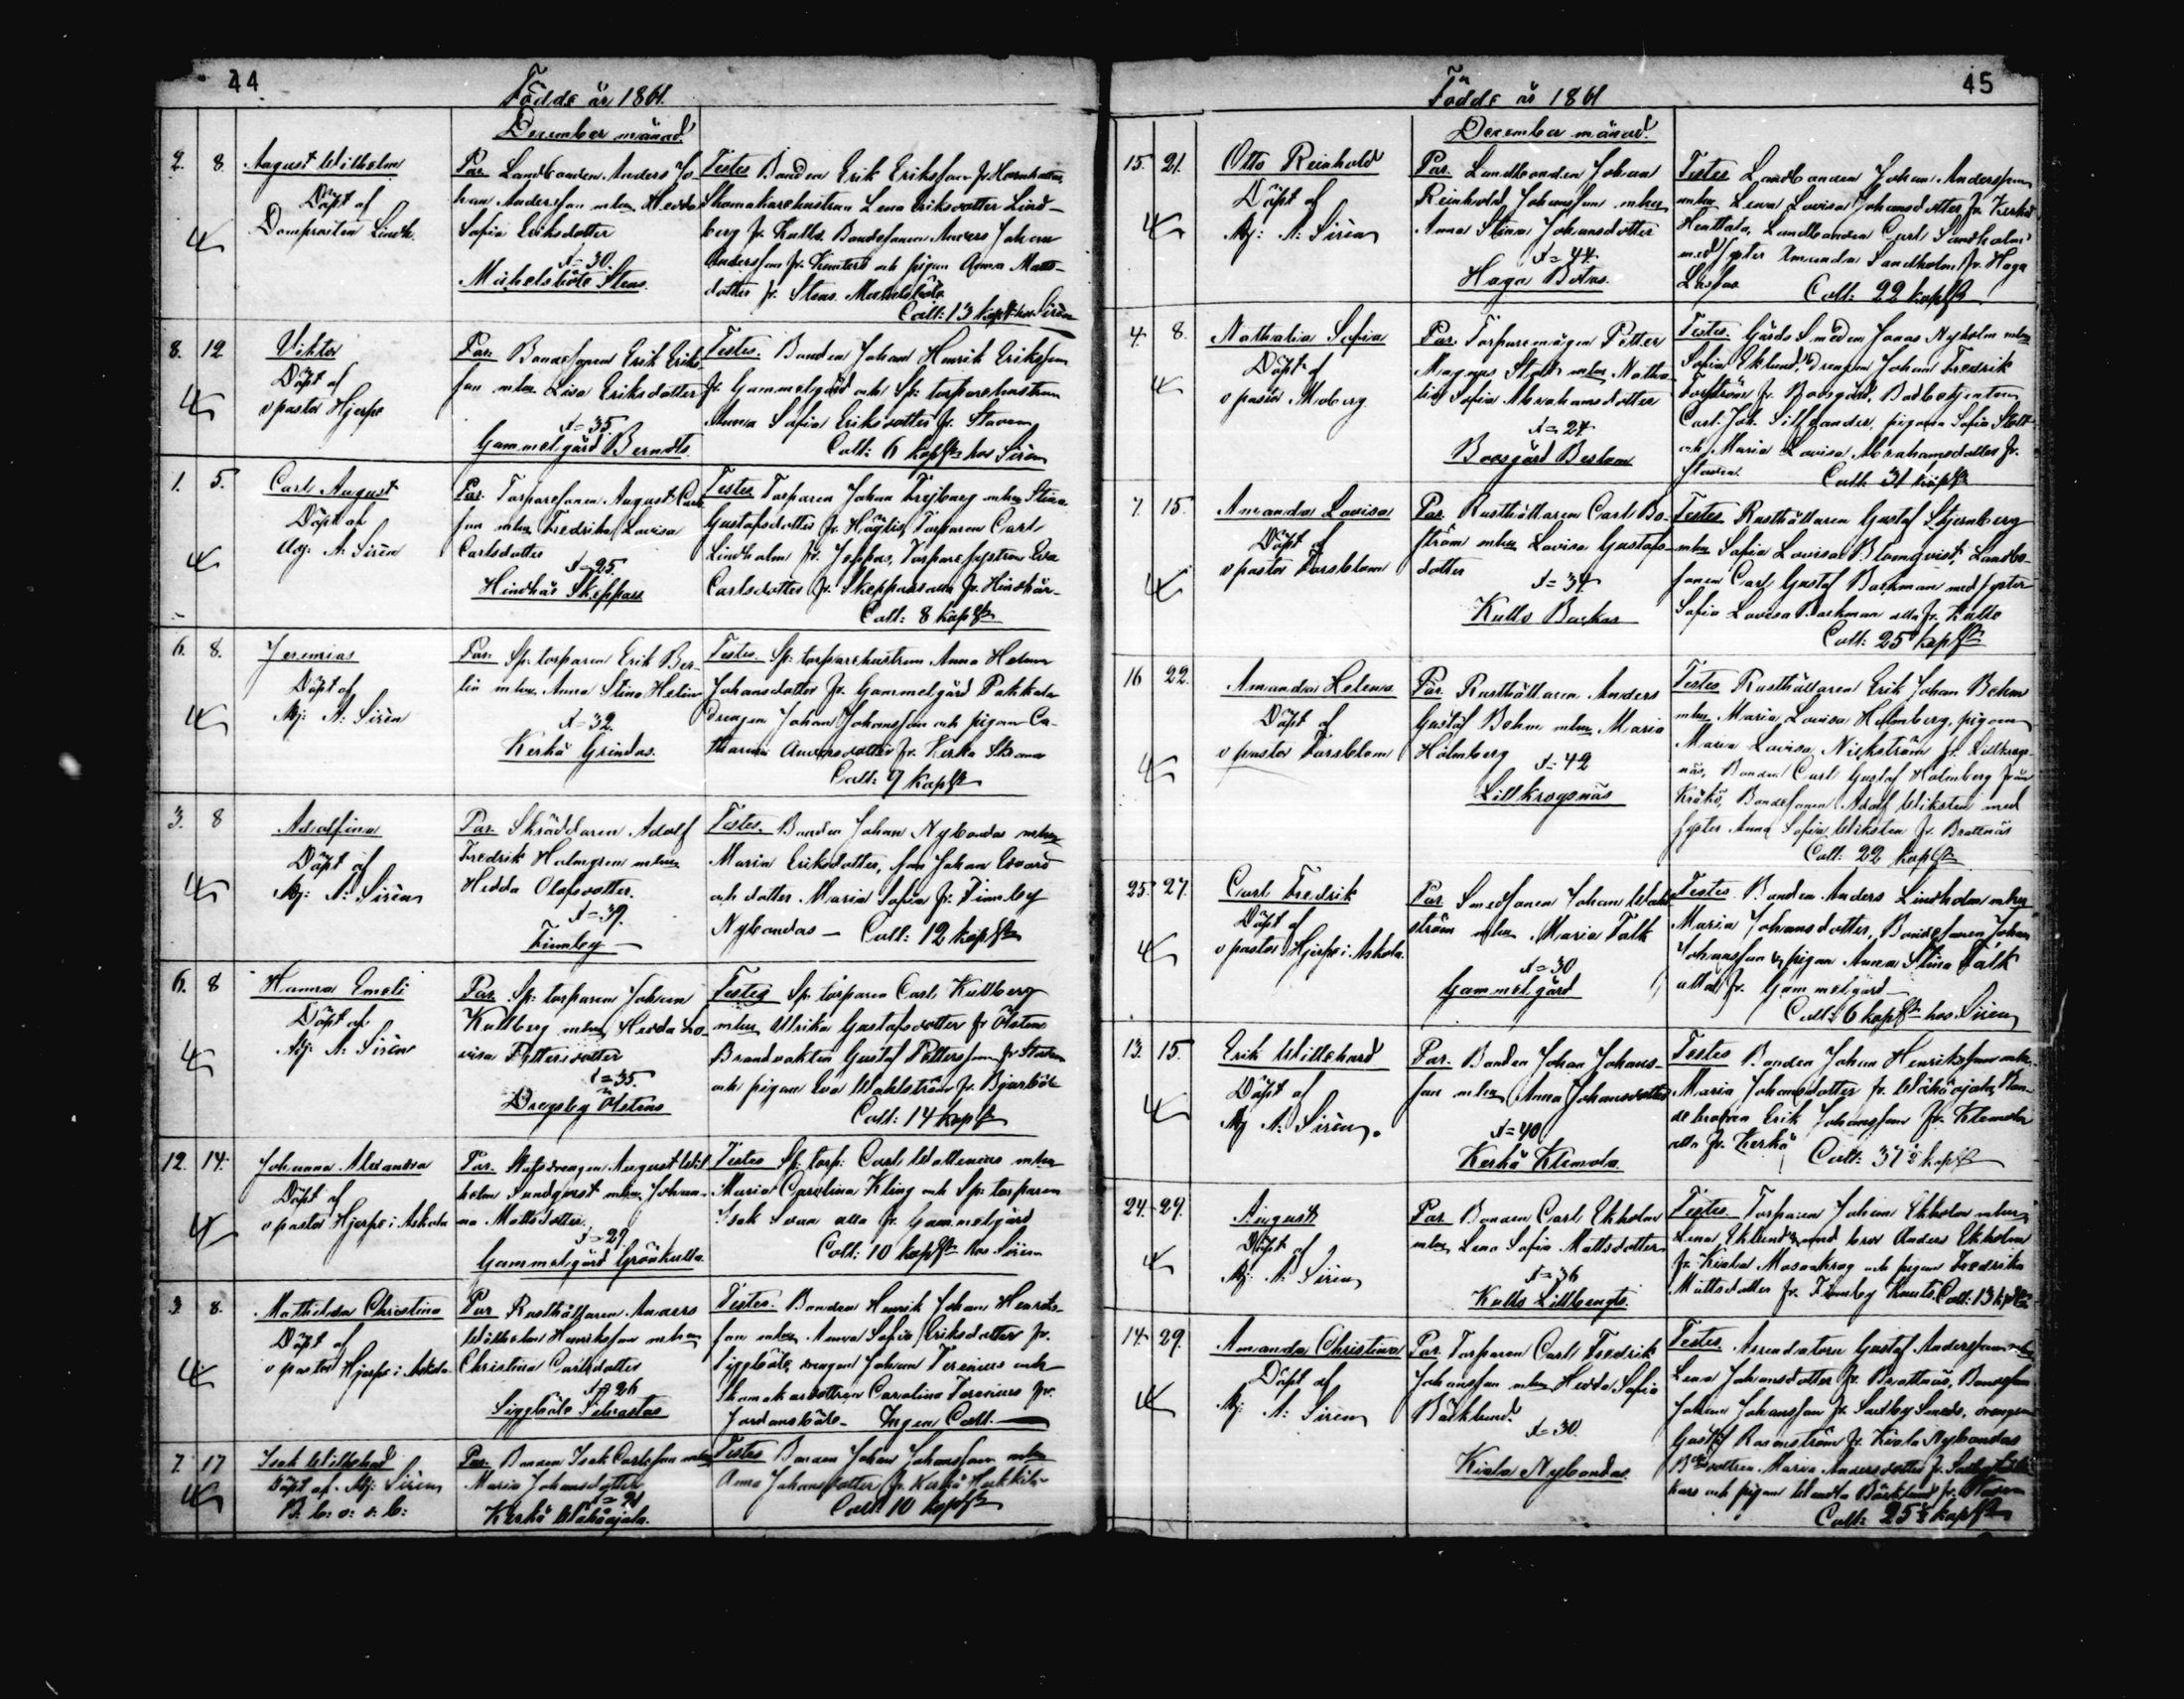 44
Födde år 1861.
December månad.
2. 8. August Wilhelm
Döpt af
Domprosten Lindh.
Par. Landbonden Anders Jo-
han Andersson mhu Hedda
Sofia Eriksdotter
A=30.
Michelsböle Stens.
Testes Bonden Erik Eriksson fr.
Skomakarehustrun Lena Eriksdotter Lind-
berg fr. Kullo. Bondesonen Anders Johan
Andersson fr. och pigan Anna Matts-
dotter fr. Stens. Michelsböle
Coll: 13 kop. hos Sirén
8. 12 Viktor
Döpt af
v pastor Hjerpe
Par. Bondesonen Erik Eriks-
son mhu Lisa Eriksdotter
A=35.
Gammelgård Berndts.
Testes. Bonden Johan Henrik Eriksson
fr. Gammelgård och Sp: torparehustrun
Anna Sofia Eriksdotter fr. Staden
Coll: 6 kop hos Sirén
1. 5. Carl August
Döpt af
Adj: A: Sirén
Par. Torparesonen August Carls-
son mhu Fredrika Lovisa
Carlsdotter
A=25.
Hindhår Skeppars
Testes Torparen Johan Frejberg mhu Stina
Gustafsdotter fr. Torparen Carl
Lindholm fr. Jeppas, Torparesystern Eva
Carlsdotter fr. Skeppars alla fr. Hindhår.
Coll: 8 kop
6. 8. Jeremias
Döpt af
Adj: A: Sirén
Par. Sp: torparen Erik Ber-
lin mhu Anna Stina Helin
A=32.
Kerko Grindas.
Testes Sp: torparehustrun Anna Helena
Johansdotter fr. Gammelgård Pakkala
drengen Johan Johansson och pigan Ca-
tharina Andersdotter fr. Kerko
Coll: 9 kop
3. 8 Adolfina
Döpt af
Adj: A: Sirén
Par. Skräddaren Adolf
Fredrik Holmgren mhu
Hedda Olofsdotter.
A=39.
Finnby
Testes. Bonden Johan Nybondas mhu
Maria Eriksdotter, son Johan Edvard
och dotter Maria Sofia fr. Finnby
Nybondas — Coll: 12 kop
6. 8 Hanna Emeli
Döpt af
Adj: A: Sirén
Par. Sp: torparen Johan
Kullberg mhu Hedda Lo-
visa Pettersdotter
A=35.
Dregsby Ölstens
Testes Sp: torparen Carl Kullberg
mhu Ulrika Gustafsdotter fr Ölstens
Brandvakten Gustaf Pettersson fr Staden
och pigan Eva Wahlström fr. Bjurböle
Coll: 14 kop
12. 14. Johanna Alexandra
Döpt af
v pastor Hjerpe i Askola
Par. Stafsdrengen August Wil-
helm Sundqvist mhu Johan-
na Mattsdotter
A=29.
Gammelgård Grönkulla.
Testes Sp: torp: Carl Wallenius mhu
Maria Carolina Kling och Sp: torparen
Isak alla fr. Gammelgård
Coll: 10 kop hos Sirén
3. 8. Mathilda Christina
Döpt af
v pastor Hjerpe i Askola
Par. Rusthållaren Anders
Wilhelm Henriksson mhu
Christina Carlsdotter
A=26
Siggböle Silvastas
Testes. Bonden Henrik Johan Henriks-
son mhu Anna Sofia Eriksdotter fr.
Siggböle, drengen Johan Forenius och
Skomakaredottren Carolina Forenius fr.
Jordansböle— Ingen Coll.
7. 17 Isak Willehad
Döpt af Adj: Sirén
Par. Bonden Isak Carlsson mhu
Maria Johansdotter
A=21
Kerko Wähäojala.
Testes Bonden Johan Johansson mhu
Anna Johansdotter fr. Kerko Heikkilä
Coll: 10 kop
45
Födde år 1861
December månad.
15. 21. Otto Reinhold
Döpt af
Adj: A: Sirén
Par. Landbonden Johan
Reinhold Johansson mhu
Anna Stina Johansdotter
A=44.
Haga Botas.
Testes Landbonden Johan Andersson
mhu Lena Lovisa Johansdotter fr. Kerko
Hentala, Landbonden Carl Sandholm
med syster Amanda Sandholm fr. Haga
Coll: 22 kop
4. 8. Nathalia Sofia
Döpt af
v pastor Moberg
Par. Torparemågen Petter
Magnus mhu Natha-
lia Sofia Abrahamsdotter
A=24.
Boesgård
Testes. Gårds Smeden Jonas Nyholm mhu
Sofia Eklund, Drengen Johan Fredrik
fr. Boesgård,
Carl Joh. pigorna Sofia
och Maria Lovisa Abrahamsdotter fr.
Staden. Coll. 31 kop
7. 15. Amanda Lovisa
Döpt af
v pastor Forsblom
Par. Rusthållaren Carl Bo-
ström mhu Lovisa Gustafs-
dotter
A=34
Kullo Backas
Testes Rusthållaren Gustaf Stjernberg
mhu Sofia Lovisa Blomqvist, Landbo-
sonen Carl Gustaf Backman med syster
Sofia Lovisa Backman alla fr. Kullo
Coll: 25 kop
16 22. Amanda Helena
Döpt af
v pastor Forsblom
Par. Rusthållaren Anders
Gustaf Bohm mhu Maria
Holmberg
A=42
Lillkrogsnäs
Testes Rusthållaren Erik Johan Bohm
mhu Maria Lovisa Holmberg, pigan
Maria Lovisa Nickström fr. Lillkrogs-
näs, Bonden Carl Gustaf Holmberg från
Kråkö, Bondesonen Adolf Wiksten med
syster Anna Sofia Wiksten fr. Brattnäs
Coll: 22 kop
25. 27. Carl Fredrik
Döpt af
v pastor Hjerpe i Askola.
Par. Smedsonen Johan Wahl-
ström mhu Maria Falk
A=30
Gammelgård
Testes. Bonden Anders Lindholm mhu
Maria Johansdotter, Bondesonen Johan
Johansson & pigan Anna Stina Falk
alla fr. Gammelgård
Coll: 6 kop hos Sirén
13. 15. Erik Willehard
Döpt af
Adj A: Sirén.
Par. Bonden Johan Johans-
son mhu Anna Johansdotter
A=40
Kerko Klemola.
Testes Bonden Johan Henriksson mhu
Maria Johansdotter fr. Wähäojala, Bon-
debroren Erik Johansson fr. Klemola
alla fr. Kerko Coll: 37½ kop
24. 29. August
Döpt af
Adj: A: Sirén
Par. Bonden Carl Ekholm
mhu Lena Sofia Mattsdotter
A=36
Kullo Lillbengts.
Testes. Torparen Johan Ekholm mhu
Lena Eklund med bror Anders Ekholm
fr. Kiala Mosakrog och pigan Fredrika
Mattsdotter fr. Finnby Knuts. Coll: 13 kop
14. 29. Amanda Christina
Döpt af
Adj: A: Sirén
Par. Torparen Carl Fredrik
Johansson mhu Hedda Sofia
Bäcklund
A=30.
Kiala Nybondas.
Testes. Arrendatorn Gustaf Andersson mhu
Lena Johansdotter fr. Brattnäs, Bondeson
Johan Johansson fr. Smeds, drengen
Gustaf Rosenström fr. Kiala Nybondas
Maria Andersdotter fr.
och pigan Wendla Bäcklund fr. Staden
Coll: 25½ kop